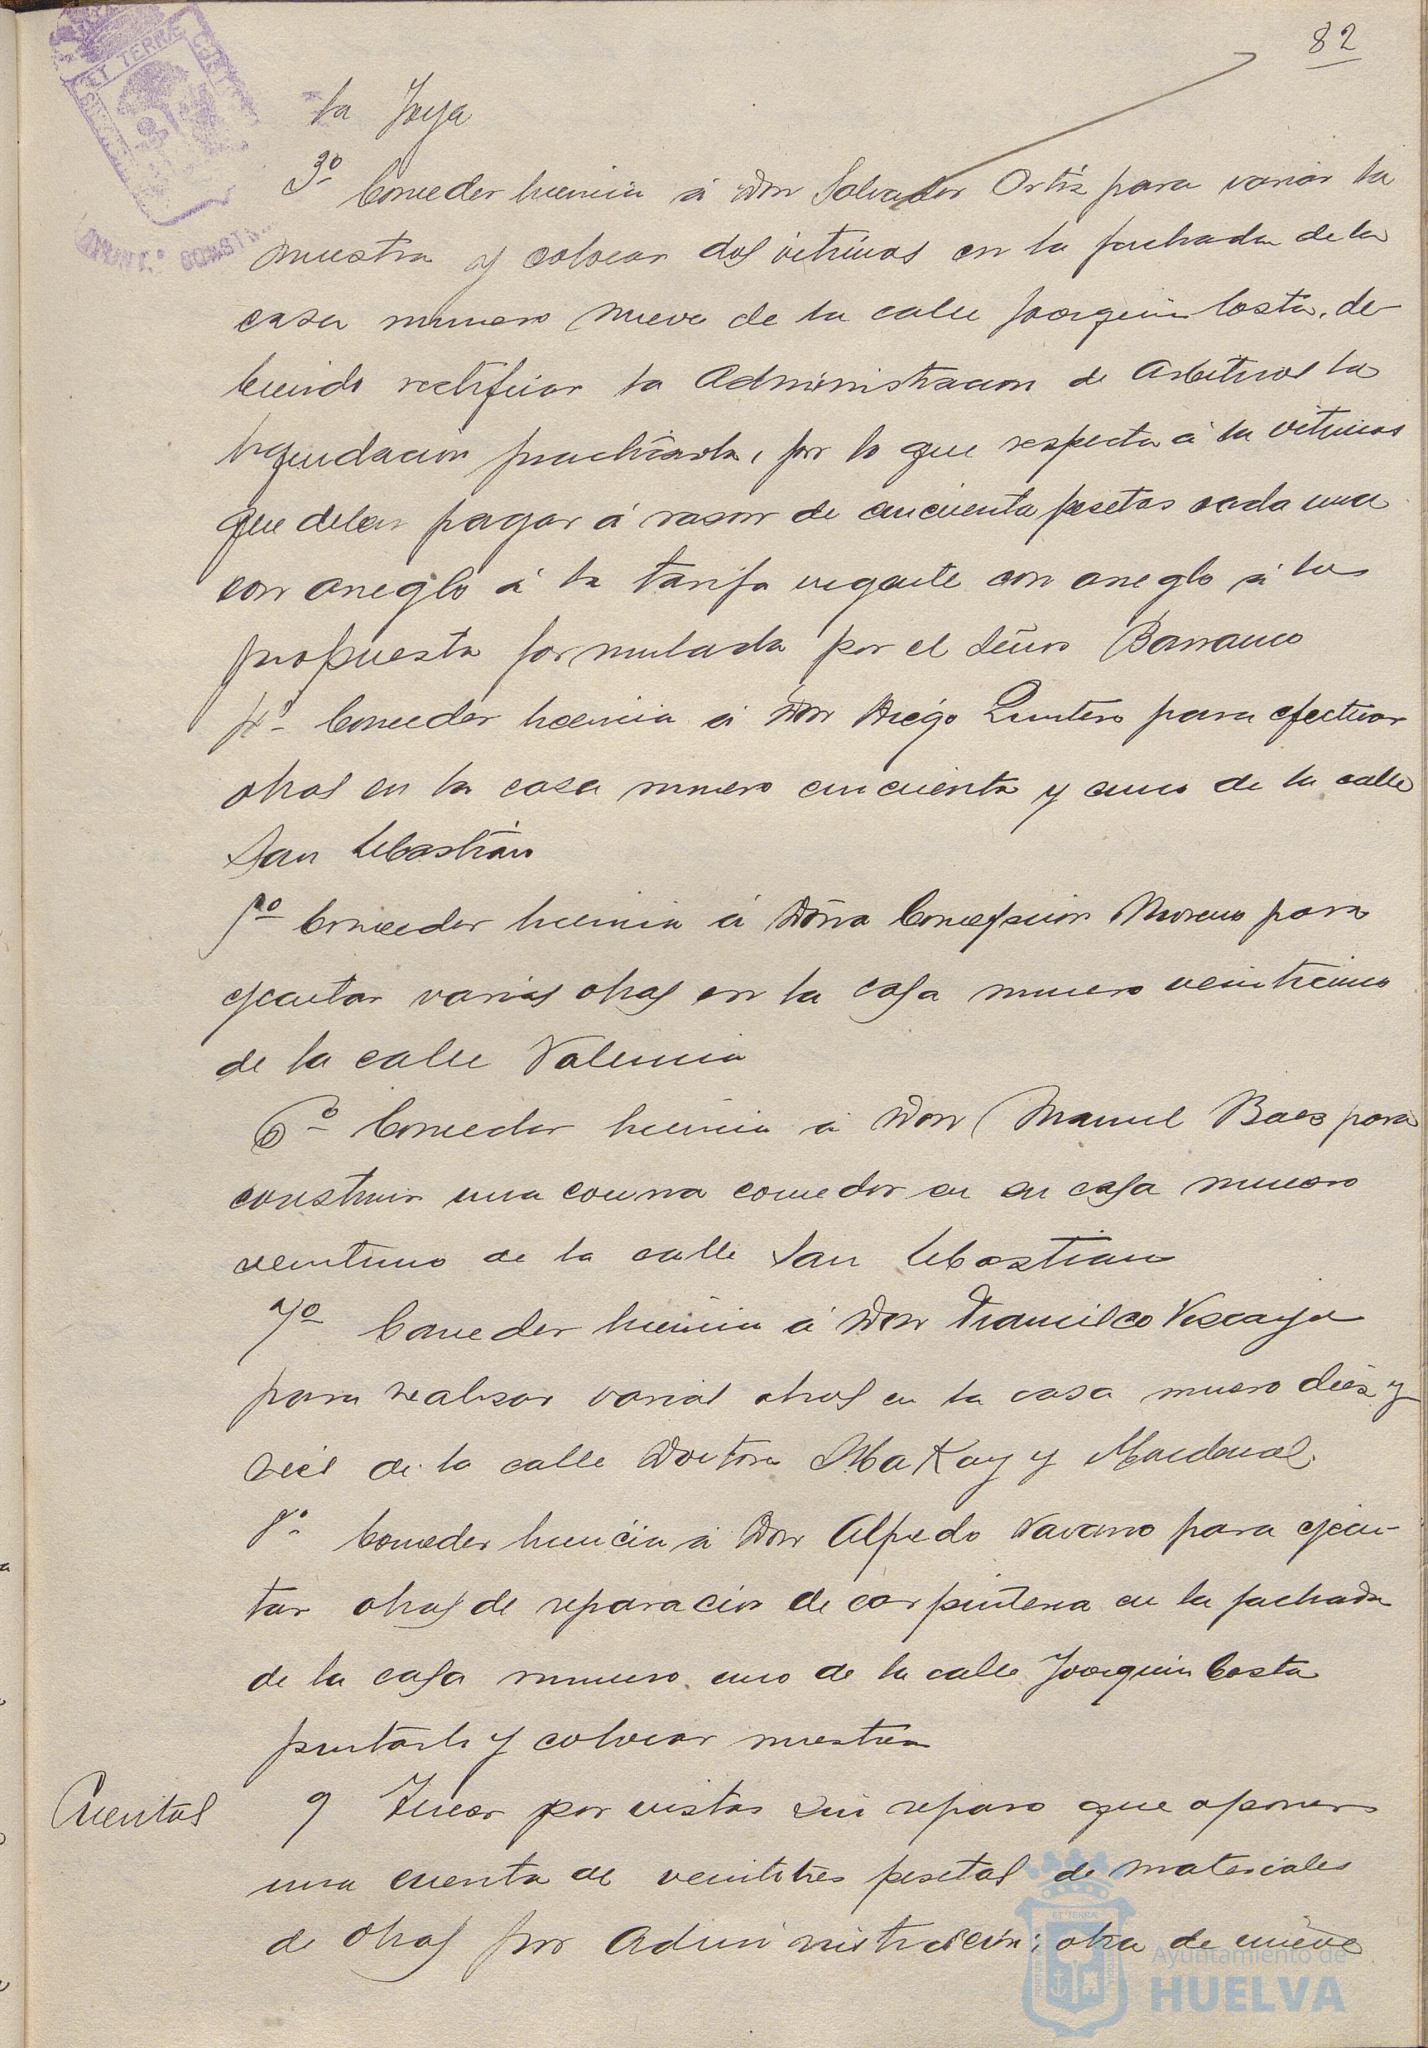 82
la Joya
3º Conceder licencia á Don Salvador Ortiz para variar la
muestra y colocar dos vitrinas en la fachada de la
casa numero nueve de la calle Joaquin Costa, de-
biendo rectificar la Administracion de Arbitrios la
liquidacion practicada, por lo que respecta á la vitrinas
que deben pagar á rason de cincuenta pesetas cada una
con arreglo á la tarifa vigente con arreglo á la
propuesta formulada por el señor Barranco
4º Conceder licencia á Don Diego Quintero para efectuar
obras en la casa numero cincuenta y cinco de la calle
San Sebastián
5º Conceder licencia á Doña Concepcion Moreno para
ejecutar varias obras en la casa numero veinticinco
de la calle Valencia
6º Conceder licencia á Don Manuel Baez para
construir una cocina comedor en su casa numero
veintiuno de la calle San Sebastian
7º Conceder licencia á Don Francisco Vizcaya
para realizar varias obras en la casa numero diez y
seis de la calle Doctores MaKay y Macdonal.
8º Conceder licencia á Don Alfredo Navarro para ejecu-
tar obras de reparación de carpinteria en la fachada
de la casa numero uno de la calle Joaquin Costa
pintarla y colocar muestra
Cuentas
9 Tener por vistas sin reparo que oponer
una cuenta de veintitres pesetas de materiales
de obras por Administración; otra de nueve
ET TERRÆ
Ayuntamiento de
HUELVA